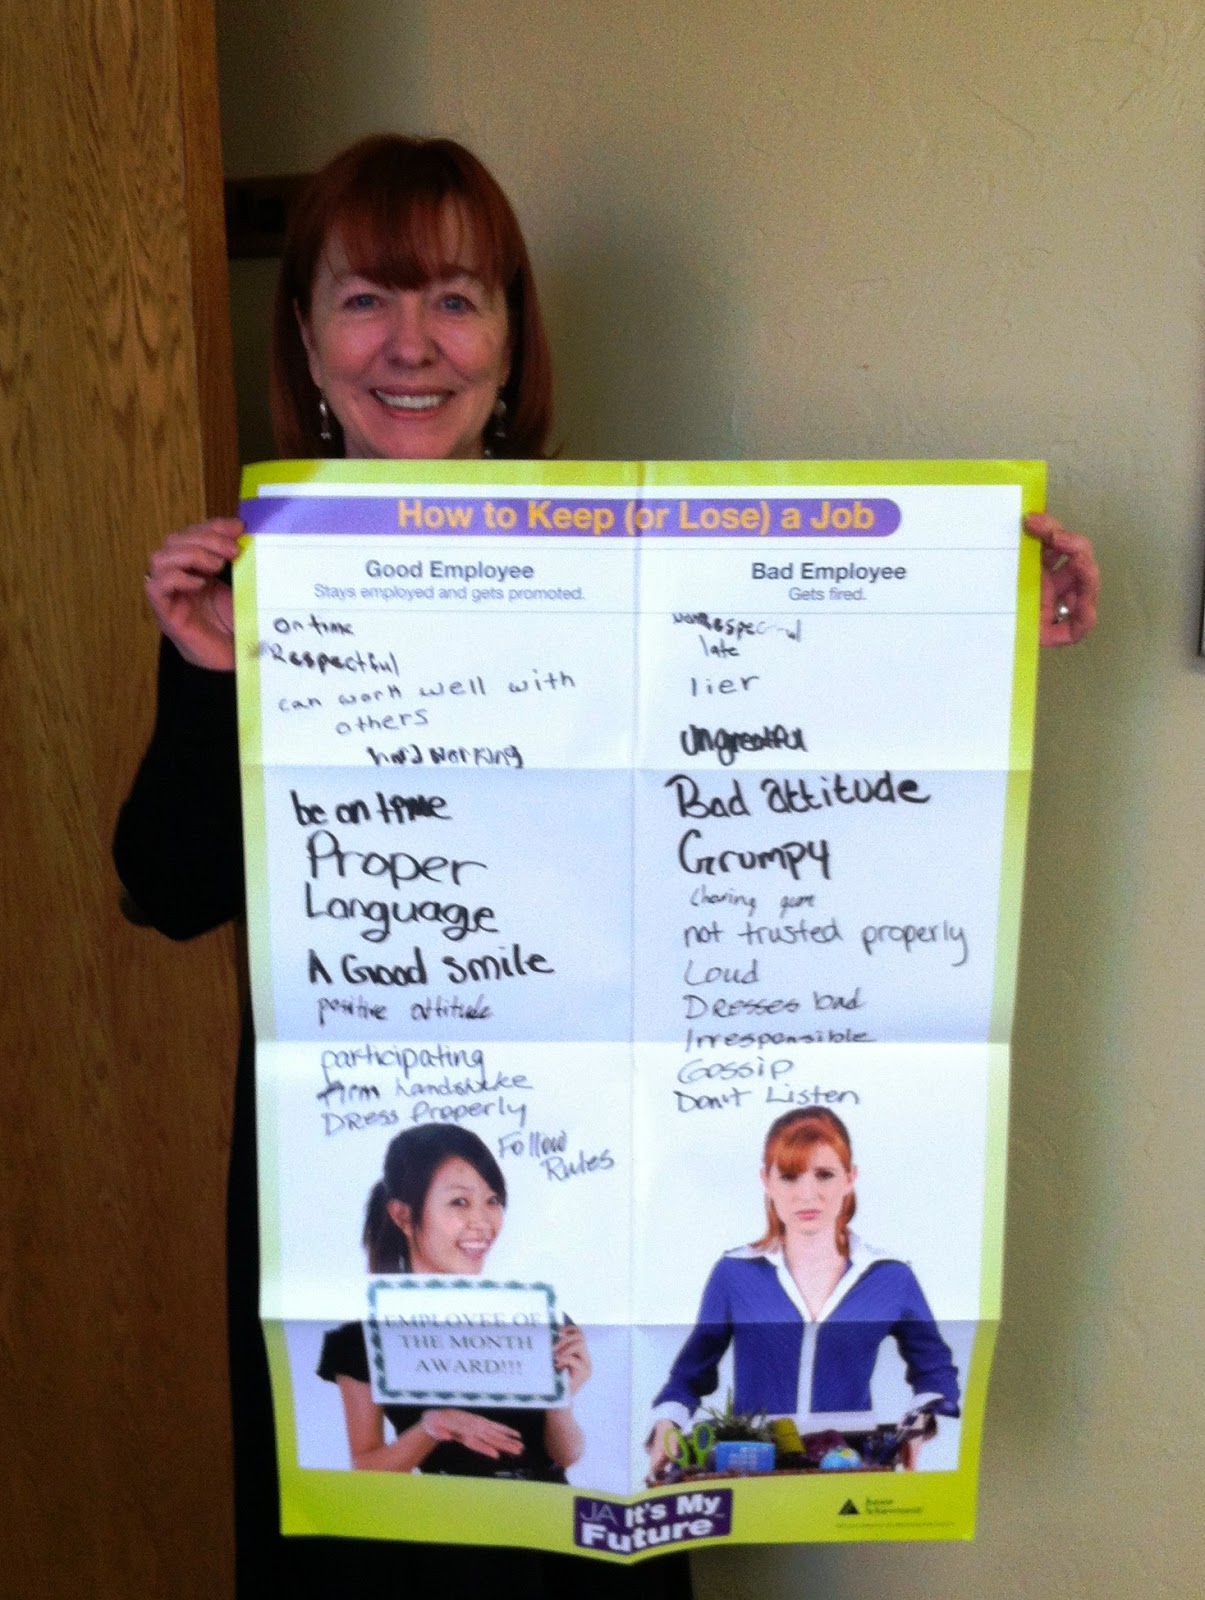 How to Keep (or Lose) a Job
Good Employee
Stays employed and gets promoted.
on time
Respectful
can work well with
others
hard working
be on time
Proper
Language
A Good smile
positive attitude
participating
firm handshake
Dress Properly
Follow
Rules
EMPLOYEE OF
THE MONTH
AWARD!!!
Bad Employee
Gets fired.
late
lier
ungreatful
Bad attitude
Grumpy
gum
not trusted properly
Loud
Dresses bad
Irresponsible
Gossip
Don't Listen
JA It's My
Future
Junior
Achievement